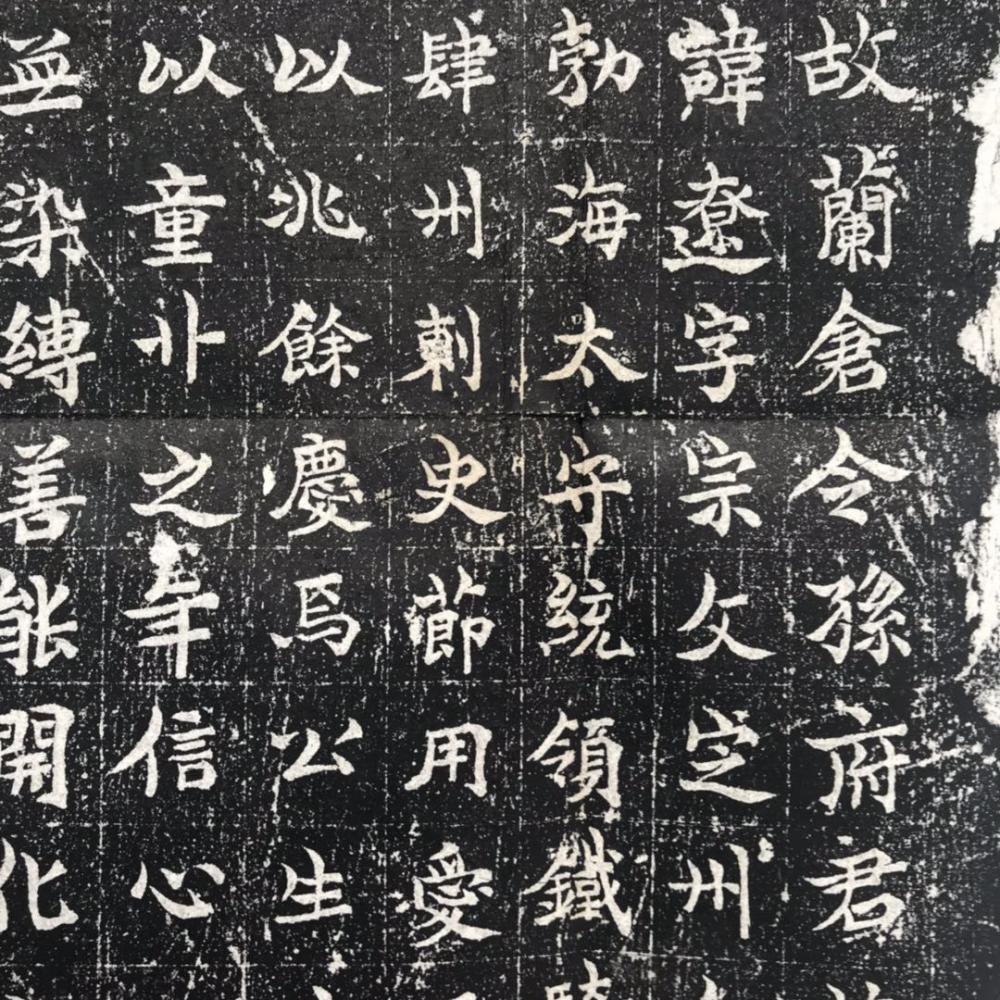 故蘭倉令孫府君
諱遼字宗文定州
勃海太守統領鐵
肆州刺史節用愛
以兆餘慶焉公生
以童丱之年信心
並染縛善能開化